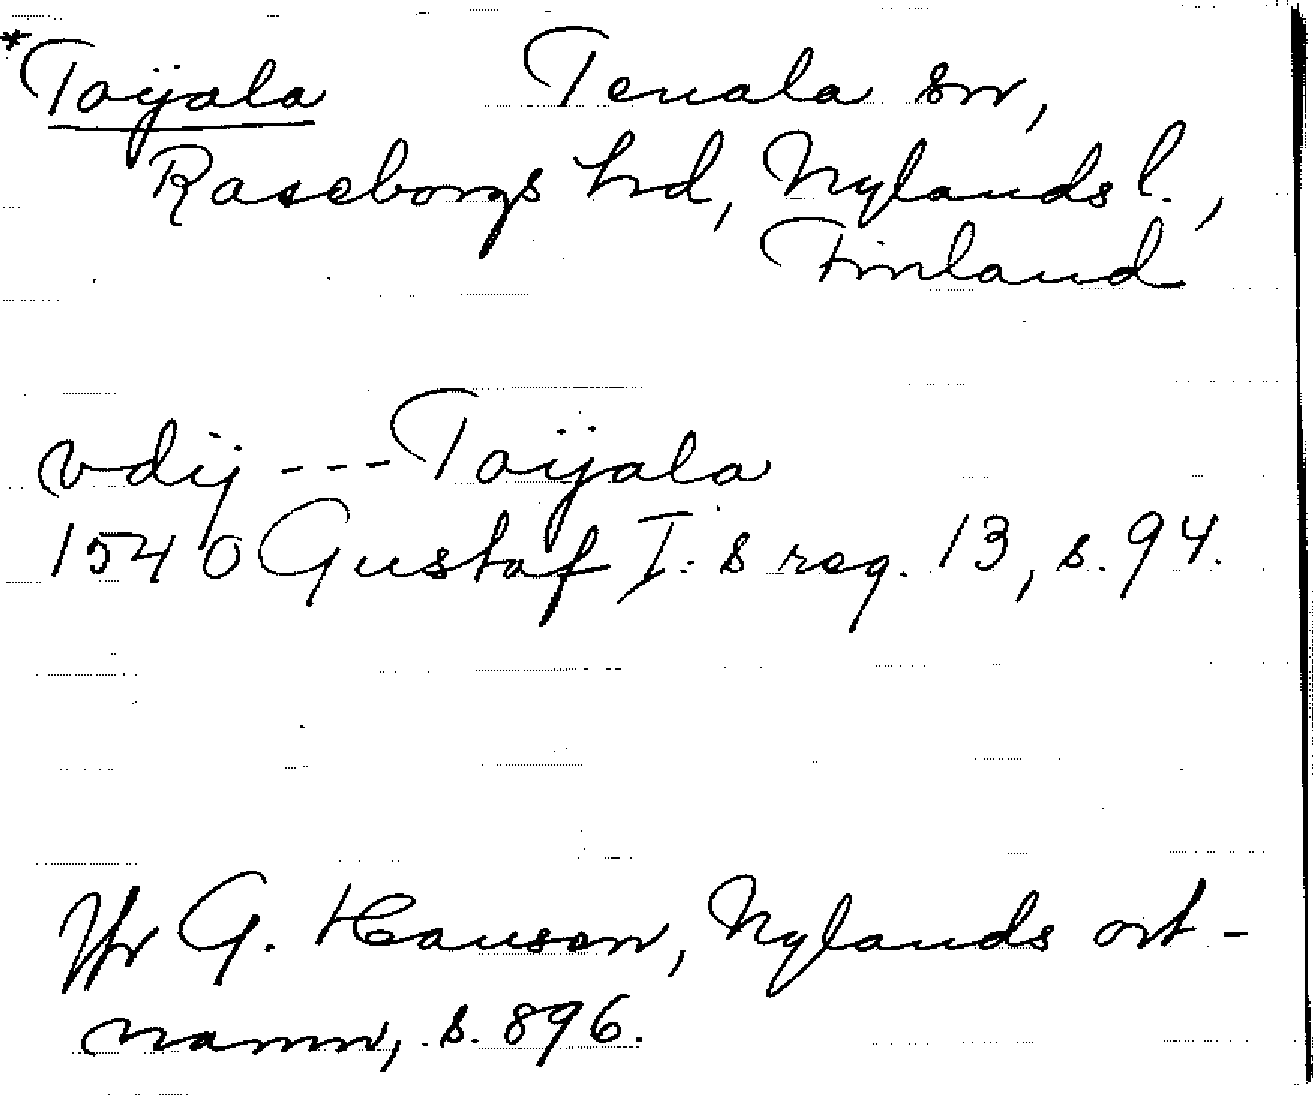 *Toijala Tenala sn,
Raseborgs hd, Nylands l.,
Finland
vdij --- Toijala
1540 Gustaf I:s reg. 13, s. 94.
Jfr G. Hausen, Nylands ort-
namn, s. 896.